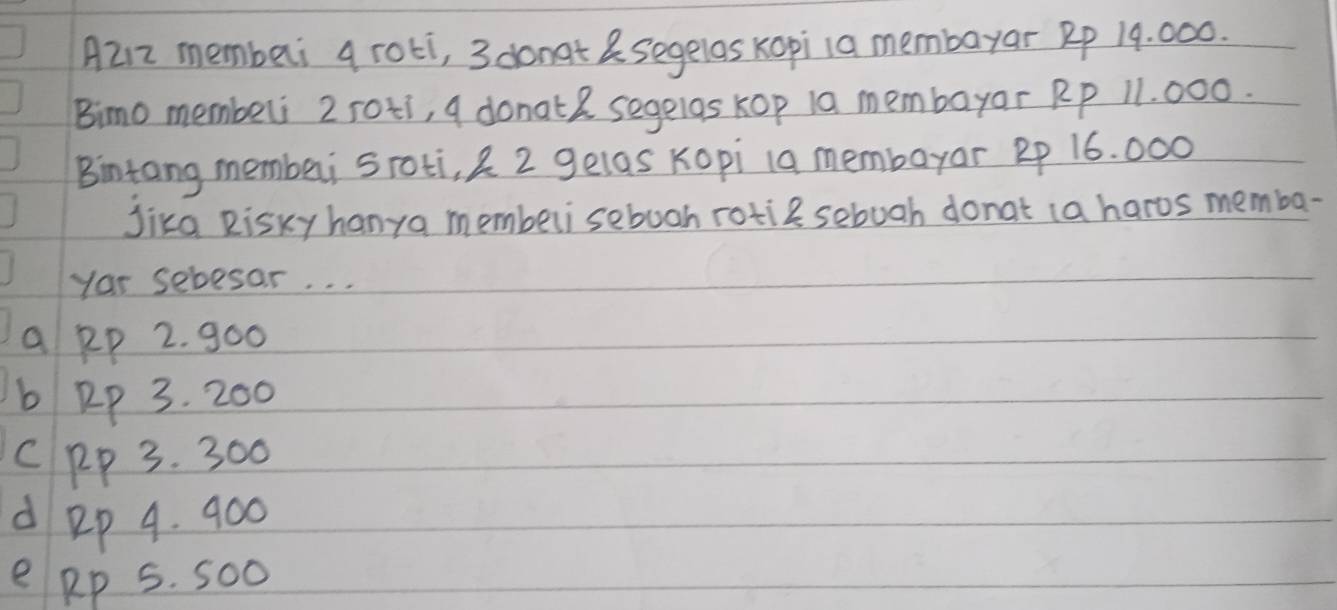 Aziz membeli 4 roti, 3 donat & segelas kopi ia membayar Rp 14.000.
Bimo membeli 2 roti, 4 donat & segelas kop ia membayar Rp 11.000.
Bintang membeli 5 roti, & 2 gelas kopi ia membayar Rp 16.000
jika Risky hanya membeli sebuah roti & sebuah donat ia harus memba-
yar sebesar ...
a Rp 2.900
b Rp 3.200
c Rp 3.300
d Rp 4.400
e Rp 5.500